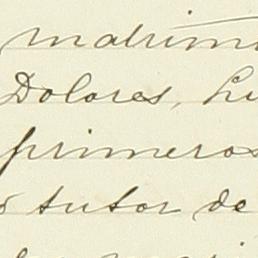 matrimo
Dolores, Lu
primeros
tutor de